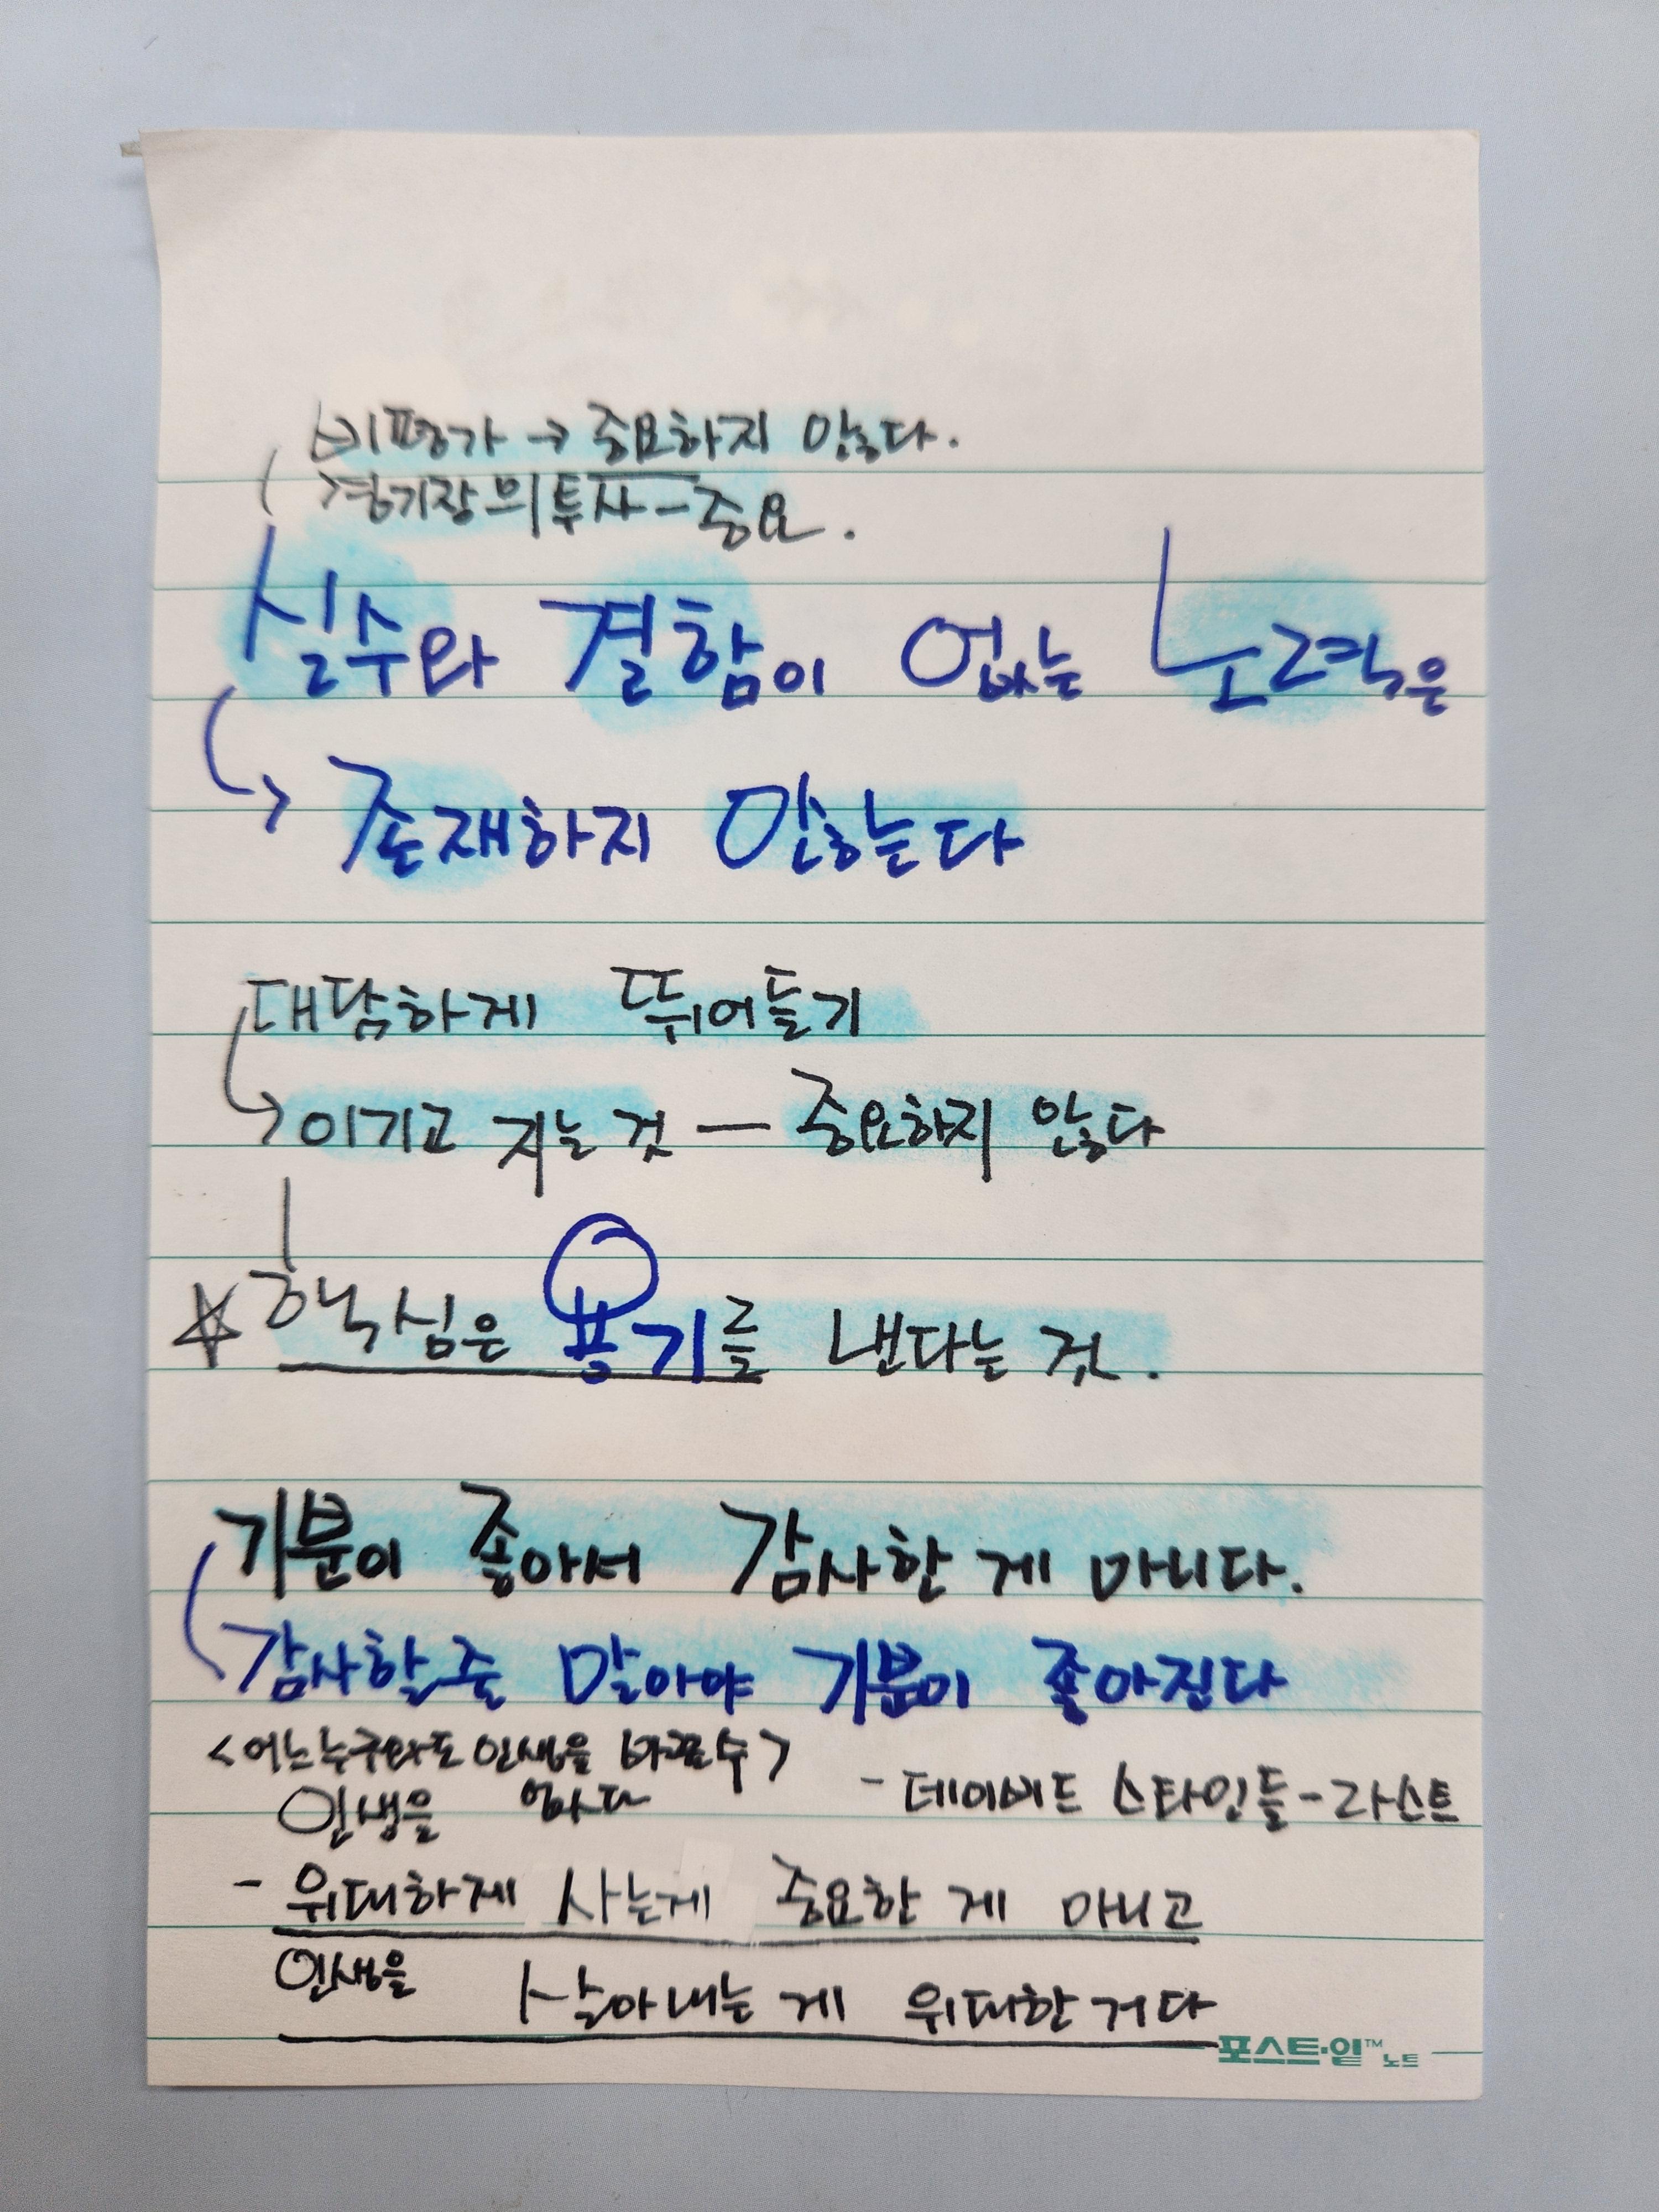 비평가 → 중요하지 않다.
경기장의 투사 - 중요.
실수와 결함이 없는 노력은
→ 존재하지 않는다
대담하게 뛰어들기
→ 이기고 지는 것 — 중요하지 않다
☆ 핵심은 용기를 낸다는 것.
기분이 좋아서 감사한 게 아니다.
감사할 줄 알아야 기분이 좋아진다
<어느 누구와도 인생을 바꿀 수>
없다
- 데이비드 스타인들-라스트
인생을
- 위대하게 사는게 중요한 게 아니고
인생을 살아내는 게 위대한 거다
포스트·잍™ 노트